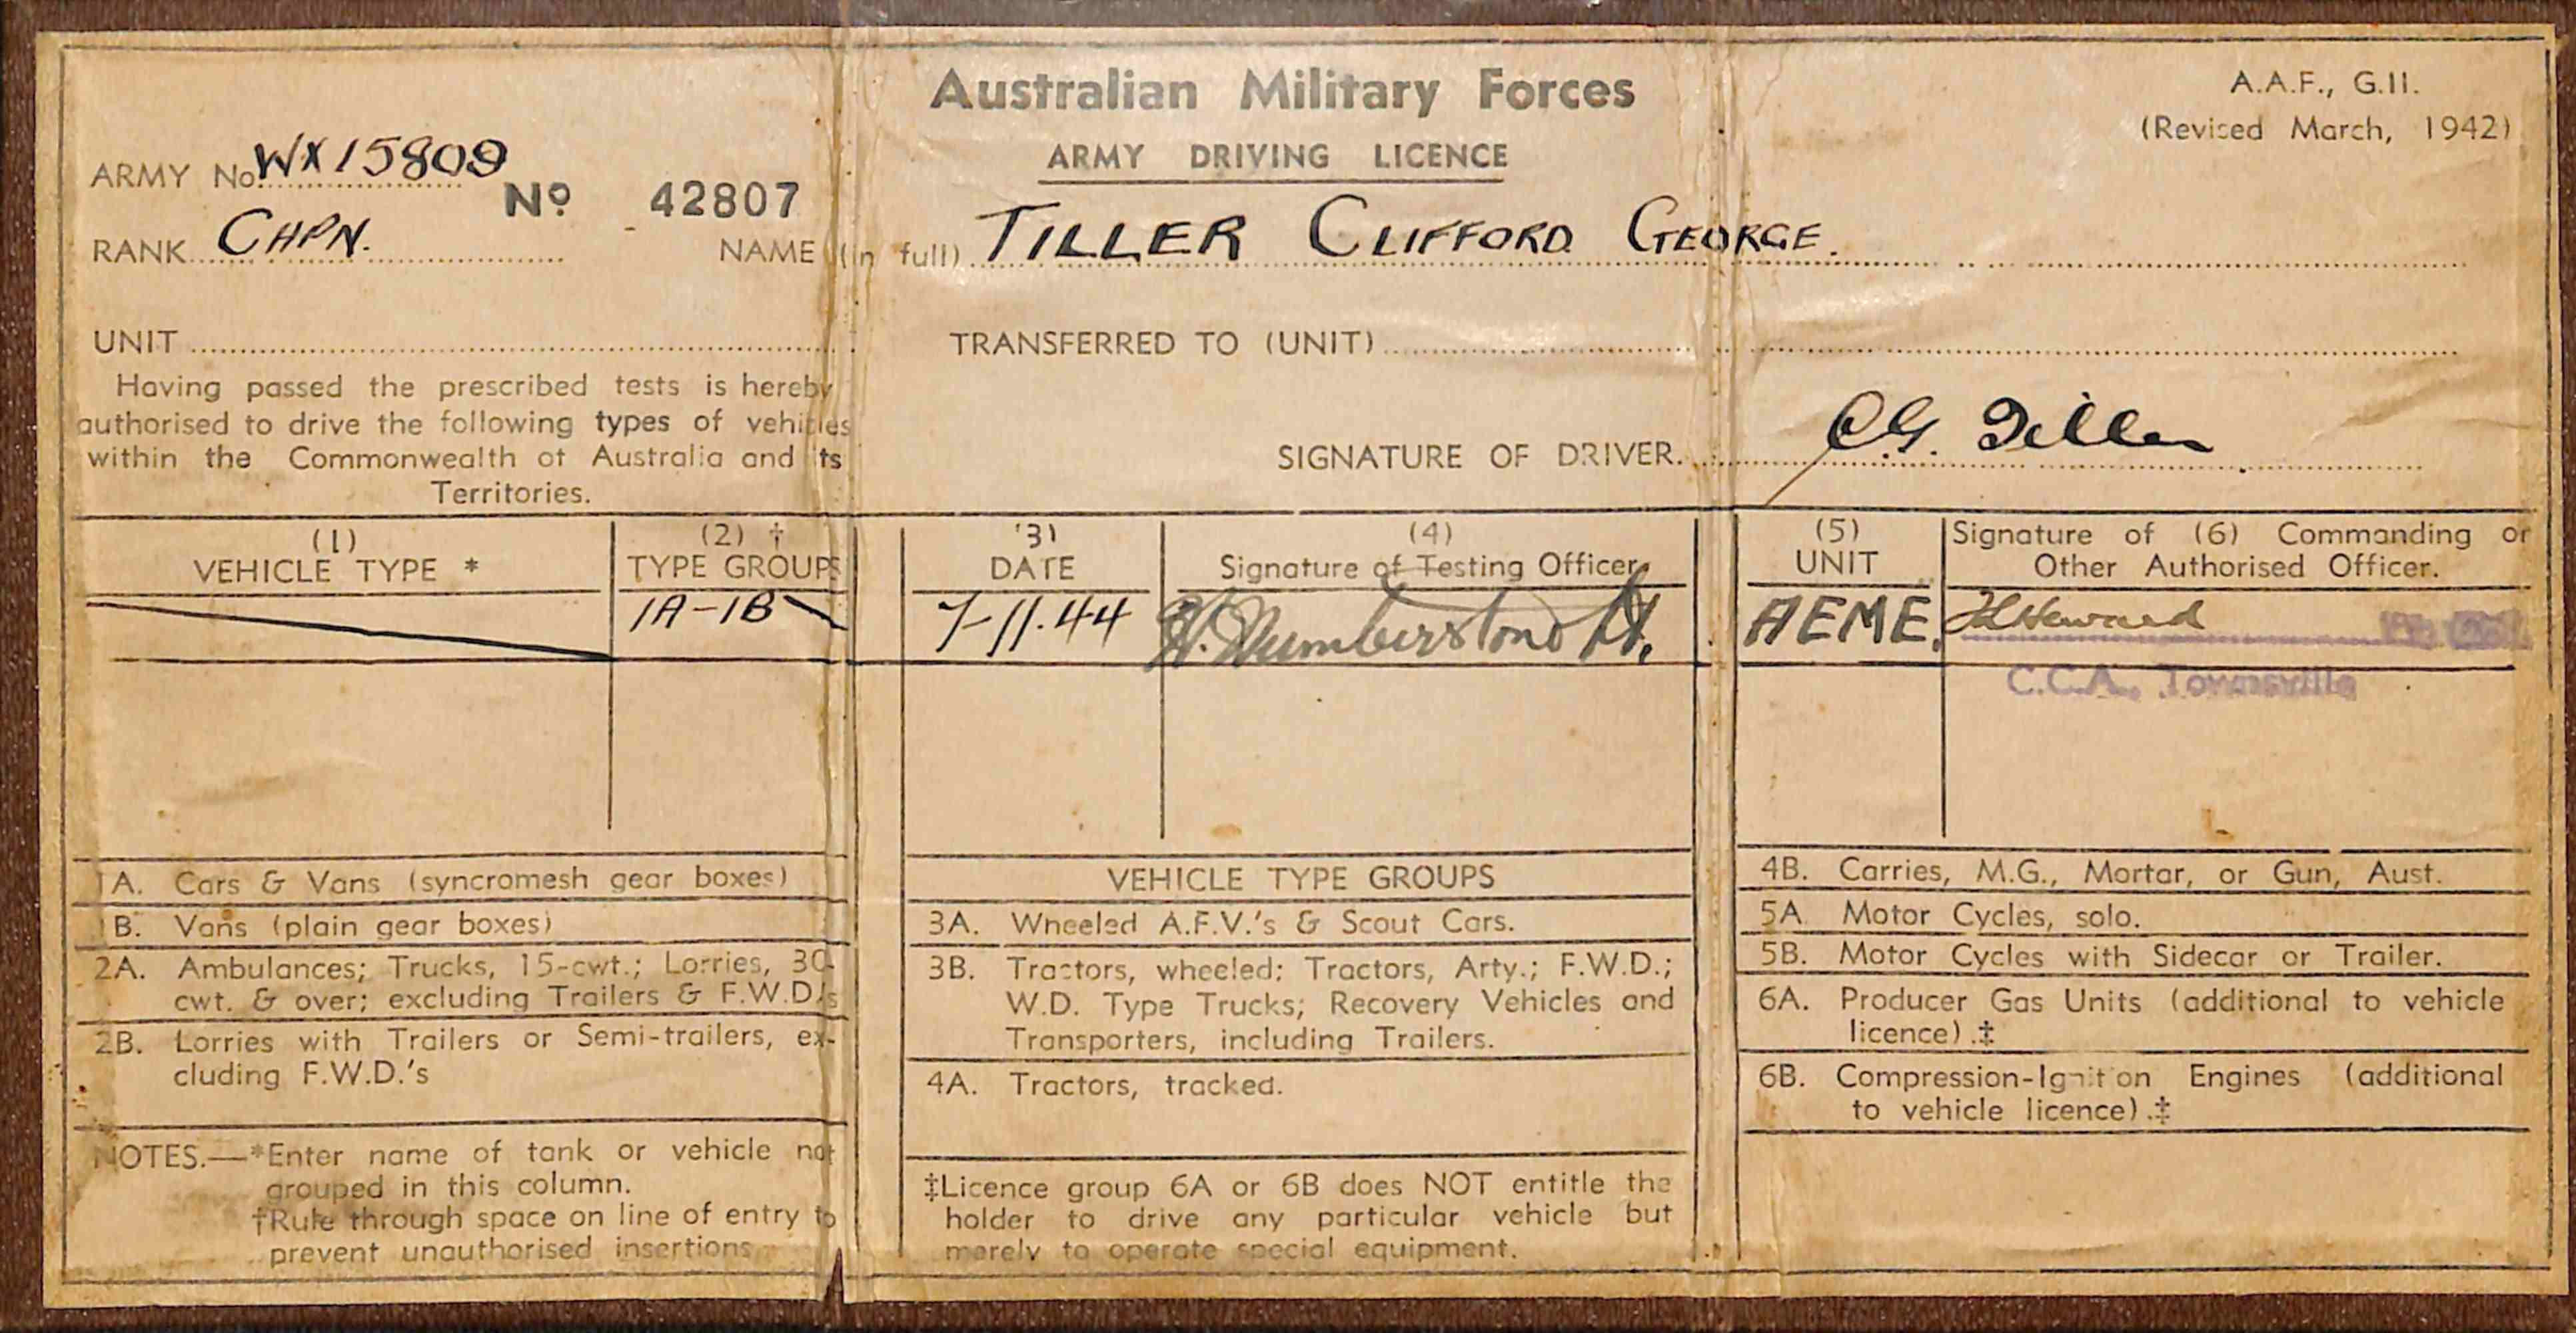 Australian Military Forces
A.A.F., G.II.
(Revised March, 1942)
ARMY DRIVING LICENCE
ARMY No. WX15809
No 42807
RANK CHPN. NAME (in full) TILLER CLIFFORD GEORGE.
UNIT TRANSFERRED TO (UNIT)
Having passed the prescribed tests is hereby
authorised to drive the following types of vehicles
within the Commonwealth of Australia and its
Territories.
SIGNATURE OF DRIVER. C.G. Tiller
(1)
VEHICLE TYPE *
(2) †
TYPE GROUPS
1A-1B
(3)
DATE
7-11.44
(4)
Signature of Testing Officer.
Lt.
(5)
UNIT
AEME.
Signature of (6) Commanding or
Other Authorised Officer.
C.C.A. Townsville
1A. Cars & Vans (syncromesh gear boxes)
1B. Vans (plain gear boxes)
2A. Ambulances; Trucks, 15-cwt.; Lorries, 30-
cwt. & over; excluding Trailers & F.W.D.'s
2B. Lorries with Trailers or Semi-trailers, ex-
cluding F.W.D.'s
NOTES.—*Enter name of tank or vehicle not
grouped in this column.
†Rule through space on line of entry to
prevent unauthorised insertions
VEHICLE TYPE GROUPS
3A. Wheeled A.F.V.'s & Scout Cars.
3B. Tractors, wheeled; Tractors, Arty.; F.W.D.;
W.D. Type Trucks; Recovery Vehicles and
Transporters, including Trailers.
4A. Tractors, tracked.
‡Licence group 6A or 6B does NOT entitle the
holder to drive any particular vehicle but
merely to operate special equipment.
4B. Carries, M.G., Mortar, or Gun, Aust.
5A. Motor Cycles, solo.
5B. Motor Cycles with Sidecar or Trailer.
6A. Producer Gas Units (additional to vehicle
licence).‡
6B. Compression-Ignition Engines (additional
to vehicle licence).‡